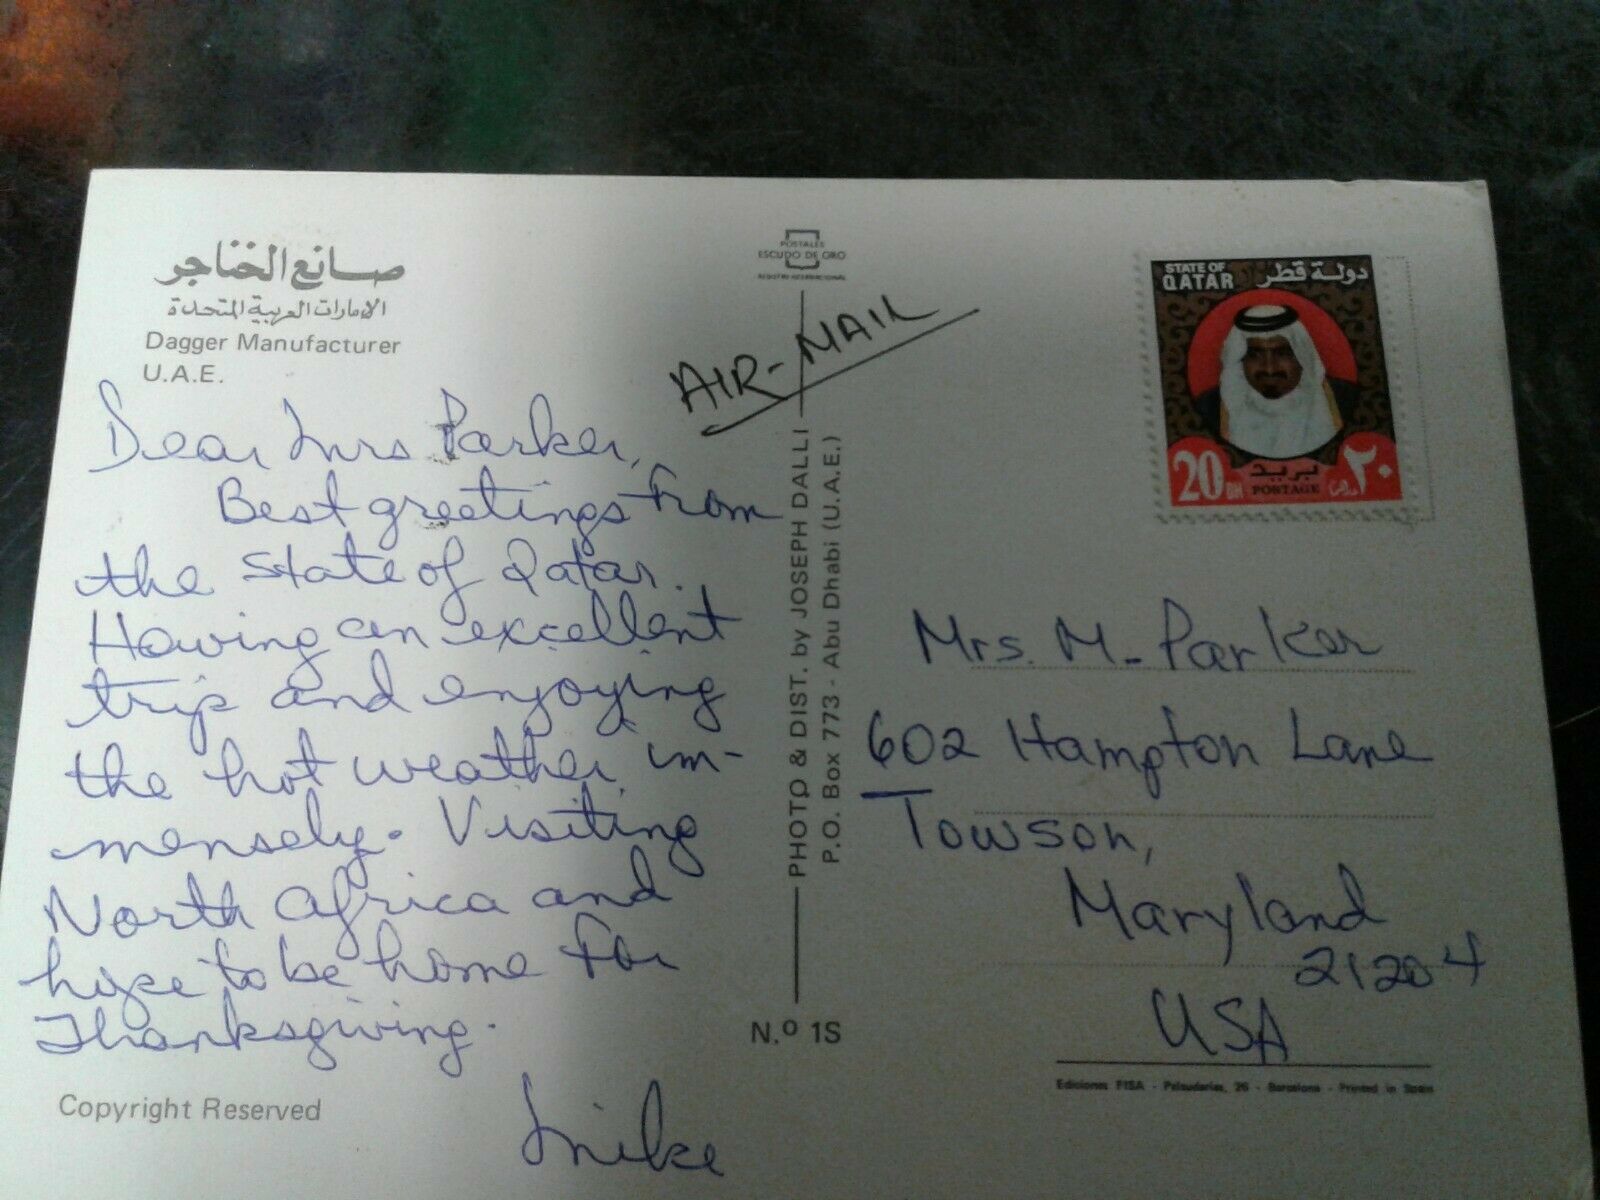 صانع الخناجر
الإمارات العربية المتحدة
Dagger Manufacturer
U.A.E.
Dear Mrs Parker,
Best greetings from
the State of Qatar.
Having an excellent
trip and enjoying
the hot weather im-
mensely. Visiting
North Africa and
hope to be home for
Thanksgiving.
Mike
Copyright Reserved
POSTALES
ESCUDO DE ORO
REGISTRO INTERNACIONAL
AIR-MAIL
PHOTO & DIST. by JOSEPH DALLI
P.O. Box 773 - Abu Dhabi (U.A.E.)
N.º 1S
STATE OF
QATAR
دولة قطر
20 DH
بريد
POSTAGE
٢٠ درهم
Mrs. M. Parker
602 Hampton Lane
Towson,
Maryland
21204
USA
Ediciones FISA - Palaudarias, 26 - Barcelona - Printed in Spain